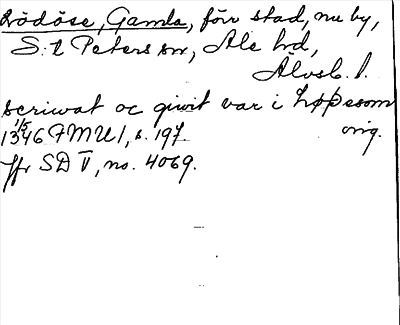 Lödöse, Gamla, förr stad, nu by,
S:t Peters sn, Ale hd,
Älvsb. l.
scriwat oc giwit var i Lyþosom
1346 1/5 FMU 1, s. 197. orig.
Jfr SD V, no. 4069.